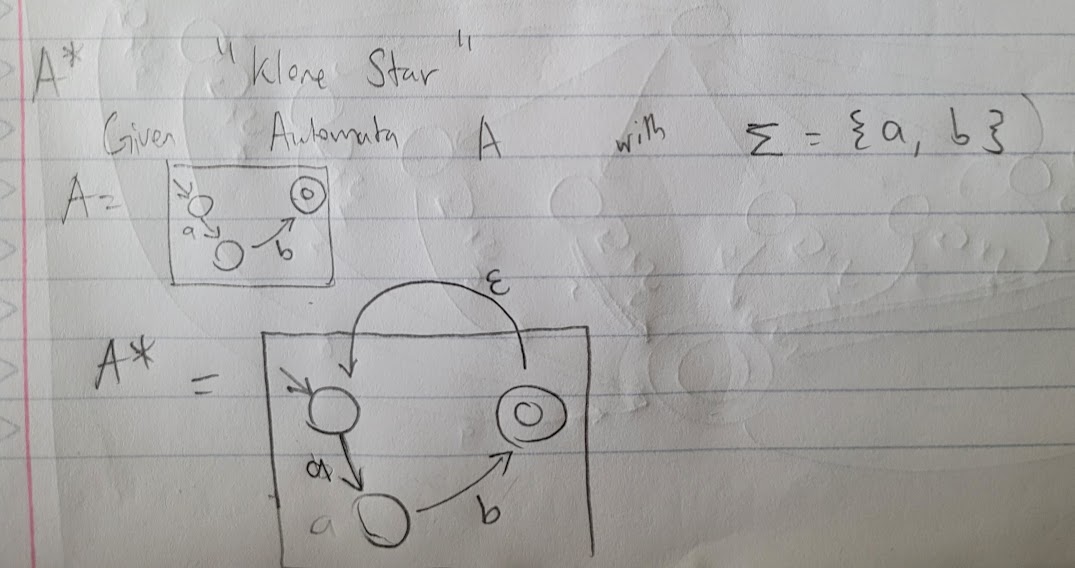 A* "Klone Star"
Given Automata A with Σ = {a, b}
A=
a
b
ε
A* =
a
a
b